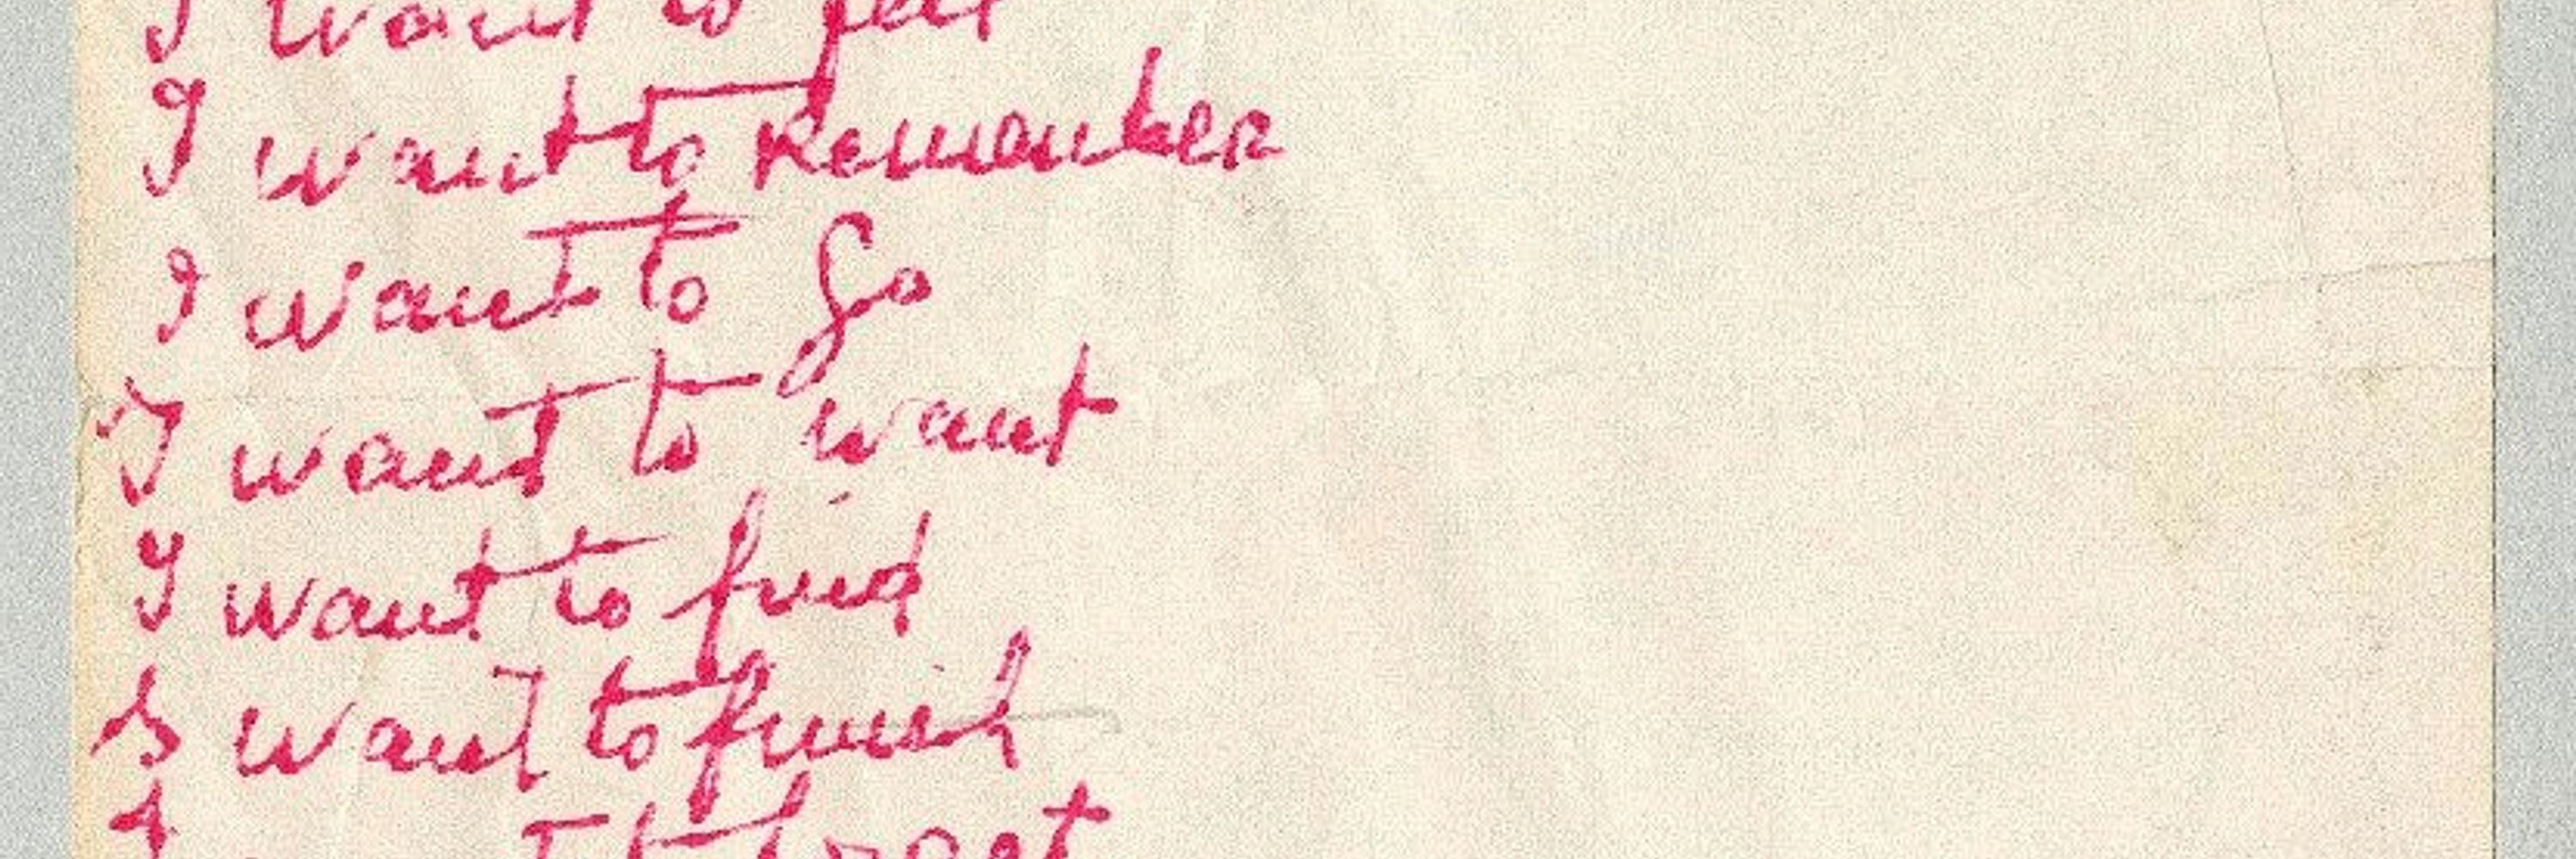 I want to
I want to Remember
I want to Go
I want to want
I want to find
I want to finish
I